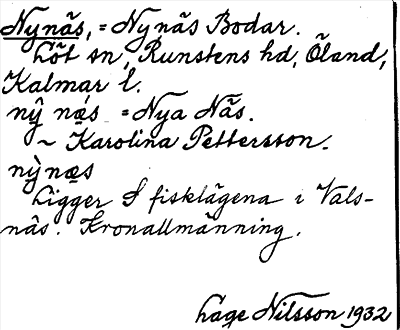 Nynäs, = Nynäs Bodar.
Löt sn, Runstens hd, Öland,
Kalmar l.
nŷ næ̂s = Nya Näs.
~ Karolina Pettersson.
nỳnæs
Ligger S fisklägena i Vals-
näs. Kronallmänning.
Låge Nilsson 1932